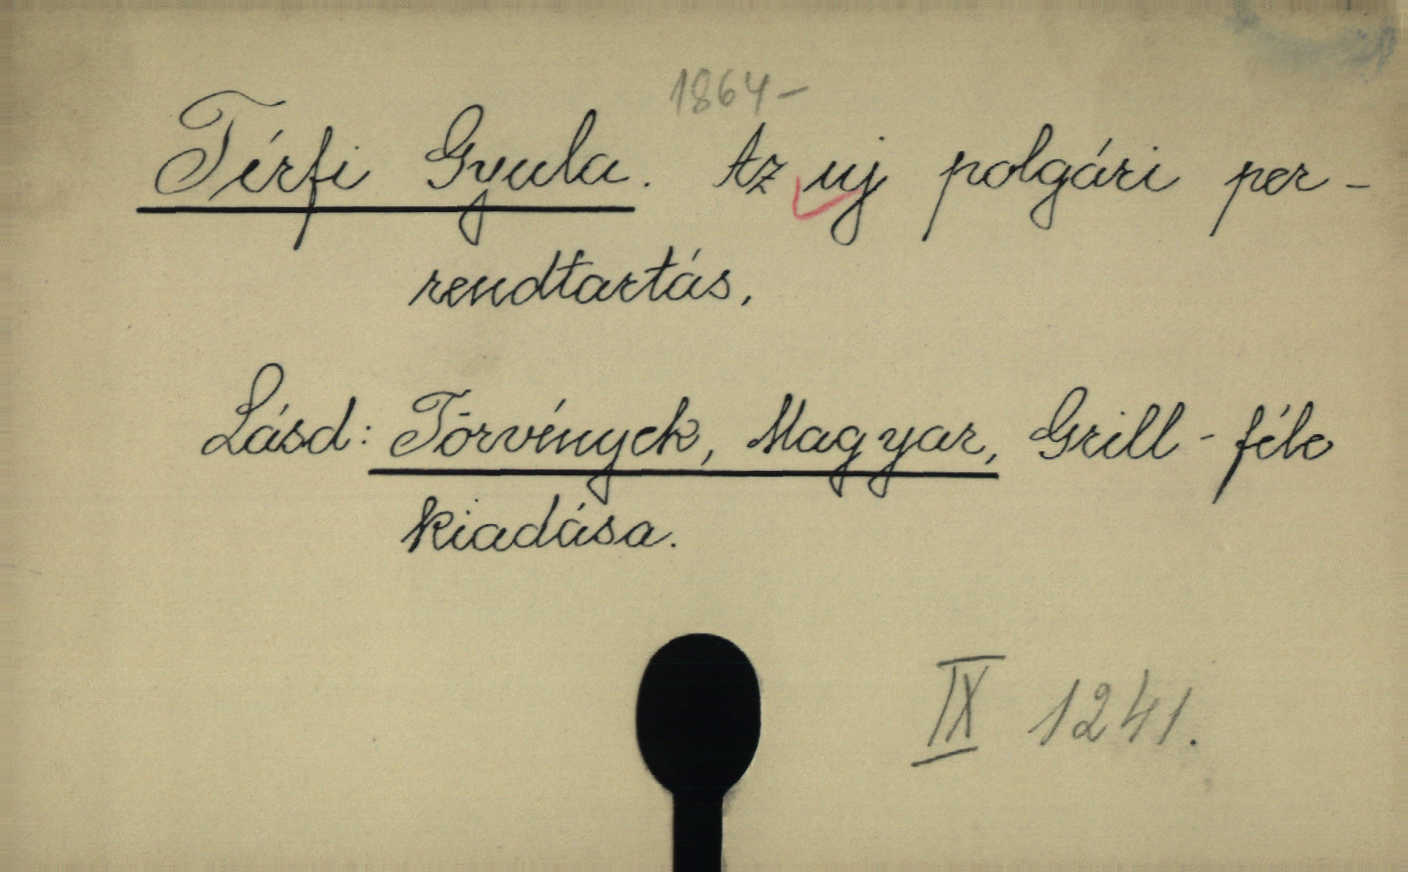 1864-
Térfi Gyula. Az uj polgári per-
rendtartás,
Lásd: Törvények, Magyar, Grill-féle
kiadása.
IX 1241.